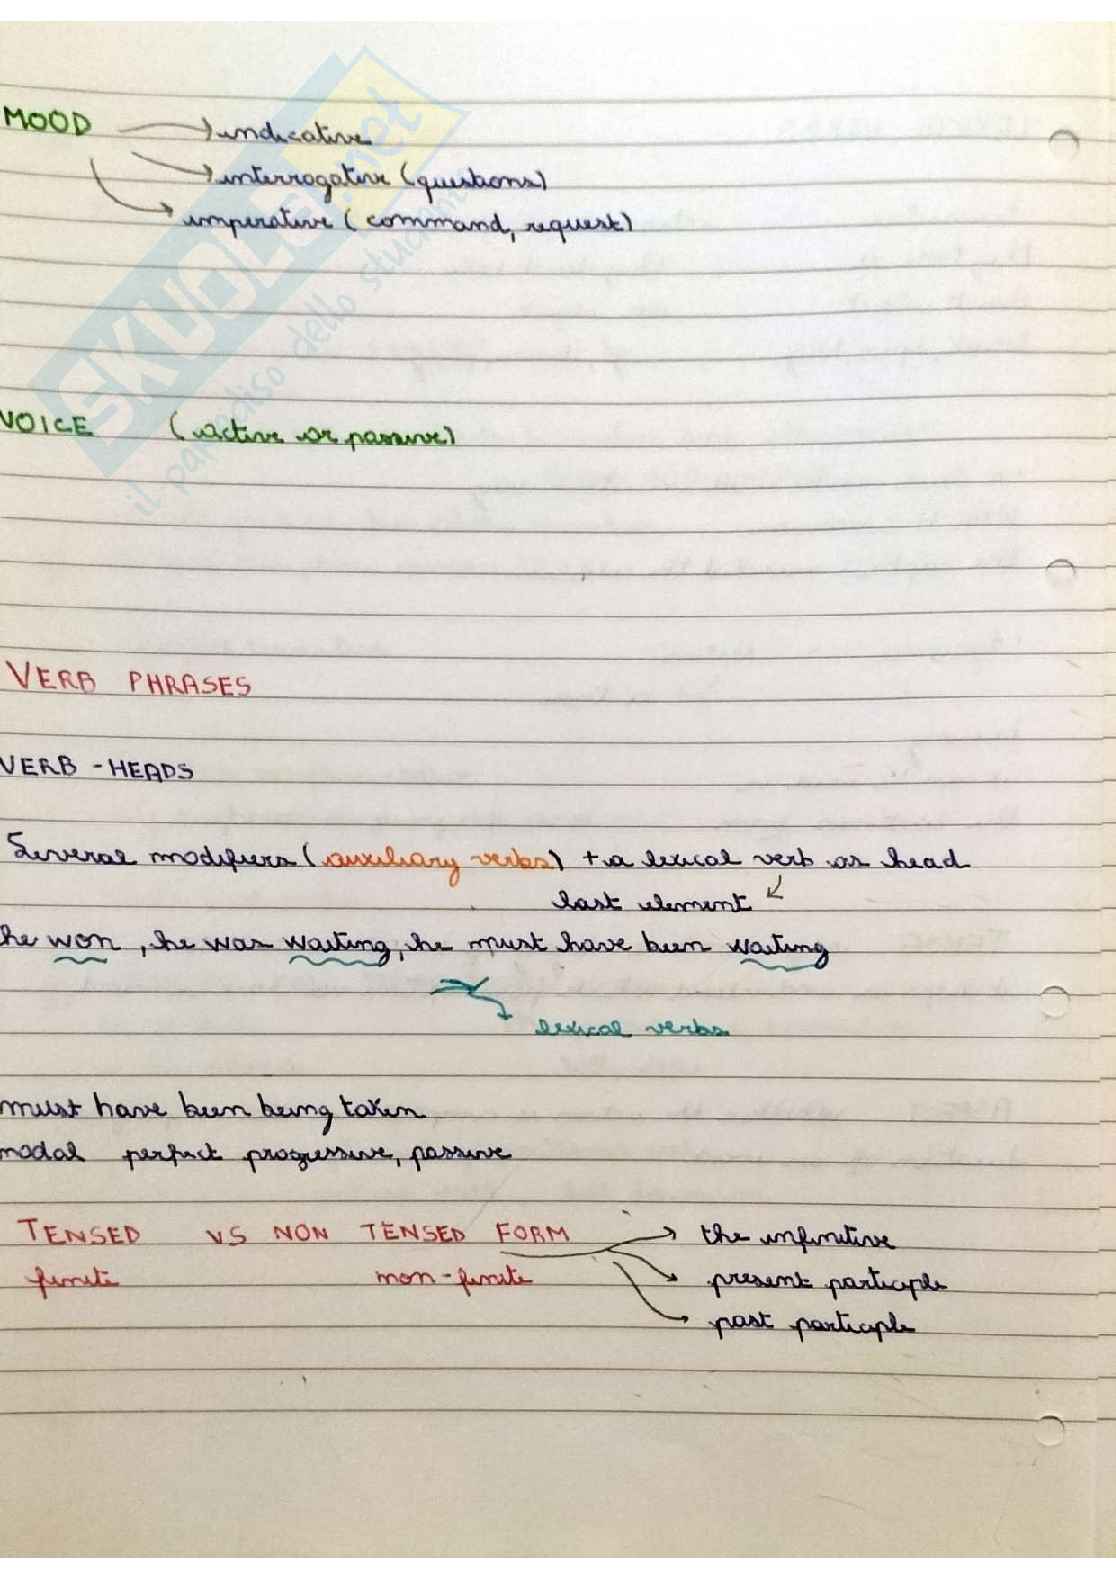 MOOD → indicative
→ interrogative (questions)
→ imperative (command, request)
VOICE (active or passive)
VERB PHRASES
VERB - HEADS
Several modifiers (auxiliary verbs) + a lexical verb as head
last element
he won, he was waiting, he must have been waiting
lexical verbs
must have been being taken
modal perfect progressive, passive
TENSED VS NON TENSED FORM → the infinitive
finite non-finite → present participle
→ past participle
SKUOLA.net
il paradiso dello studente